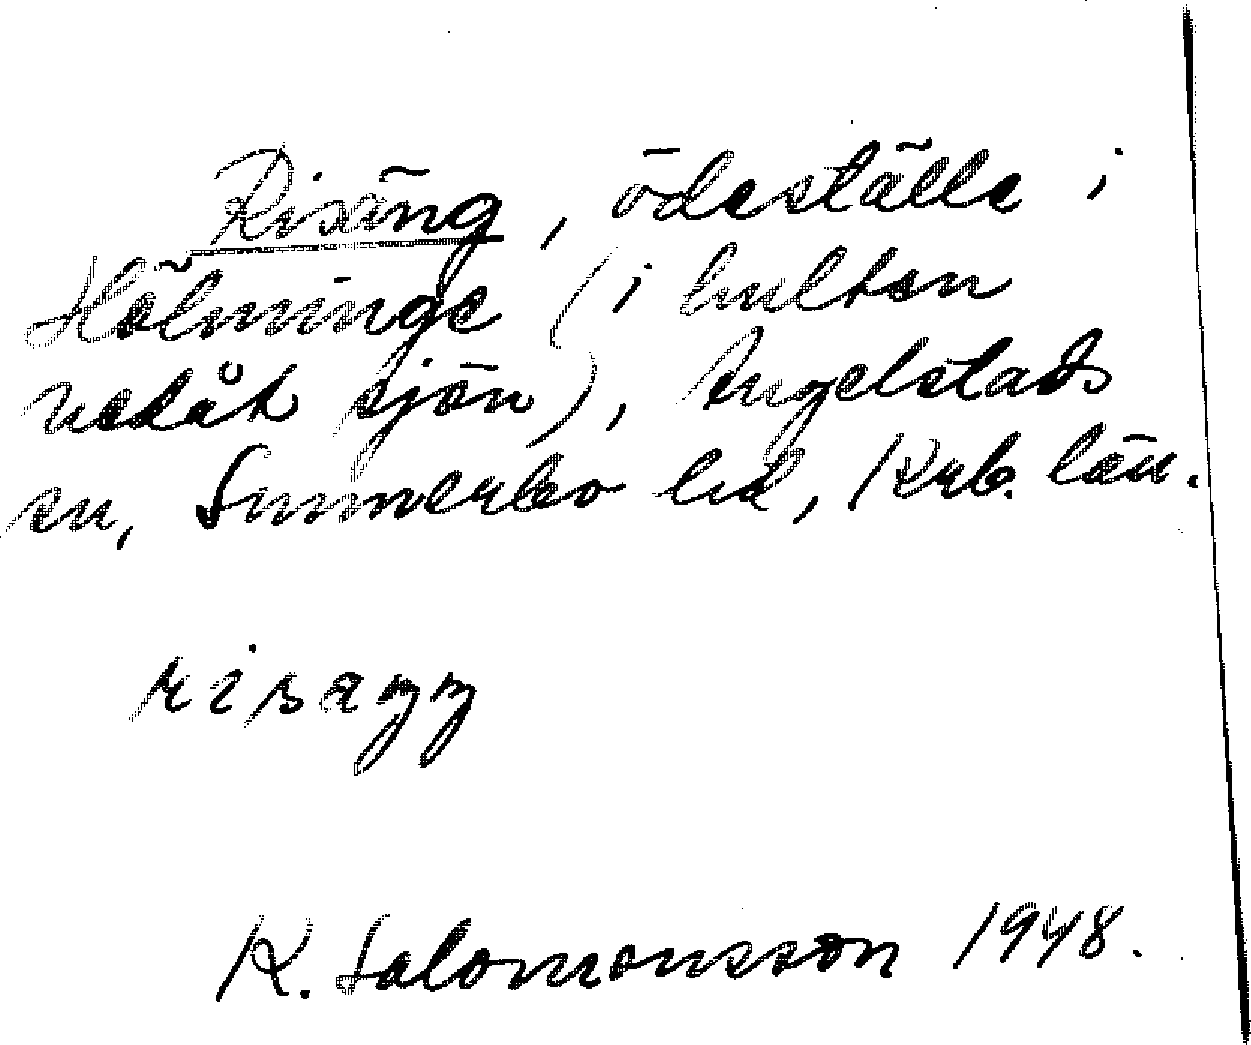 Risäng, ödeställe i
Hölminge (i hulten
nedåt sjön), Angelstads
sn, Sunnerbo hd, Krb. län.
risäŋŋ
K. Salomonsson 1948.